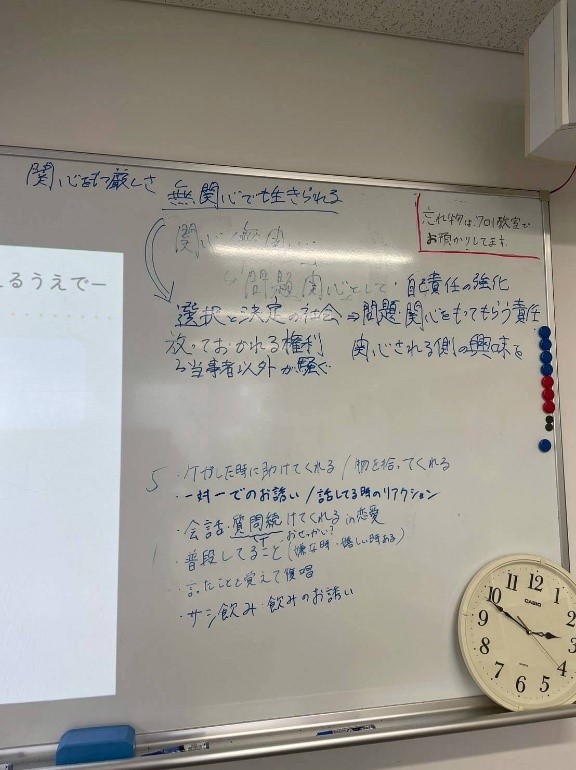 関心をもつ厳しさ 無関心でも生きられる
忘れ物は、701教室で
お預かりしてます。
関心/無関
問題関心として・自己責任の強化
るうえでー
選択と決定の社会⇒問題・関心をもってもらう責任
放っておかれる権利 関心される側の興味を
当事者以外が騒ぐ
5 ・ケガした時に助けてくれる/物を拾ってくれる
・一対一でのお誘い/話してる時のリアクション
・会話・質問続けてくれる in 恋愛
おせっかい?
1 ・普段してること (嫌な時・嬉しい時ある)
・言ったことを覚えて復唱
・サシ飲み・飲みのお誘い
CASIO
12
1
2
3
4
5
6
7
8
9
10
11